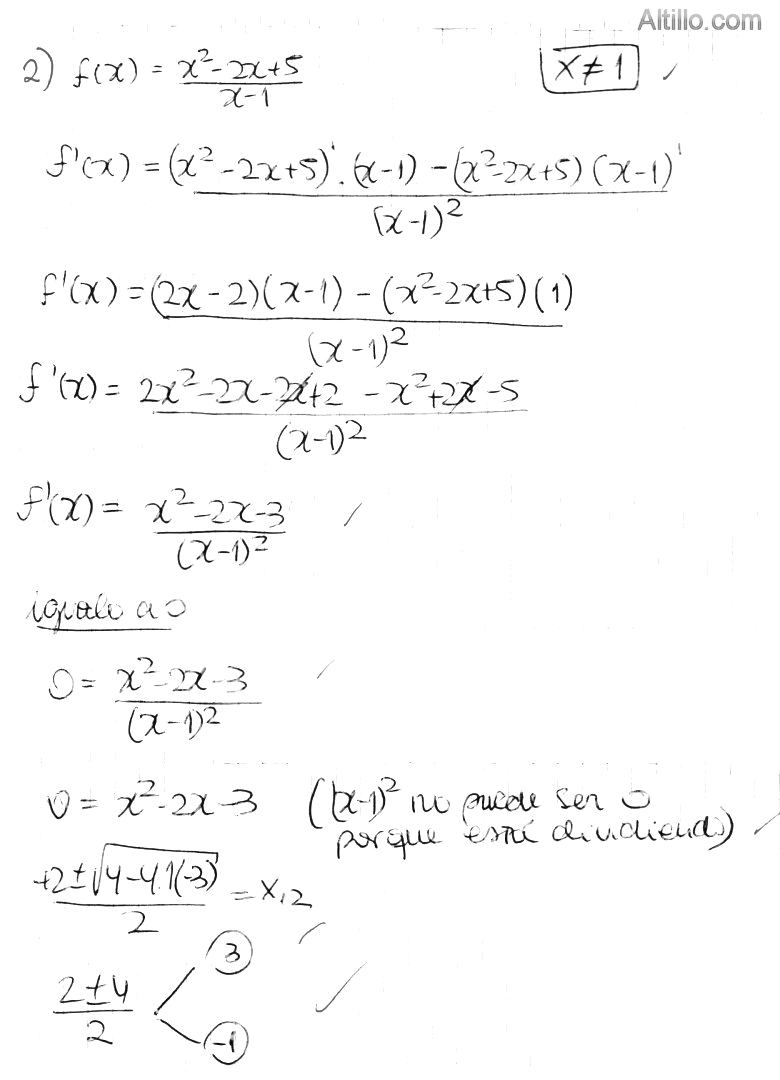 Altillo.com
2) f(x) = x²-2x+5 / x-1   x≠1 ✓
f'(x) = (x²-2x+5)'.(x-1) - (x²-2x+5)(x-1)' / (x-1)²
f'(x) = (2x-2)(x-1) - (x²-2x+5)(1) / (x-1)²
f'(x) = 2x²-2x-2x+2 - x²+2x-5 / (x-1)²
f'(x) = x²-2x-3 / (x-1)²
igualo a 0
0 = x²-2x-3 / (x-1)²
0 = x²-2x-3 ((x-1)² no puede ser 0
porque está dividiendo) ✓
+2±√4-4.1(-3) / 2 = x,2
2±4 / 2   3 ✓
-1